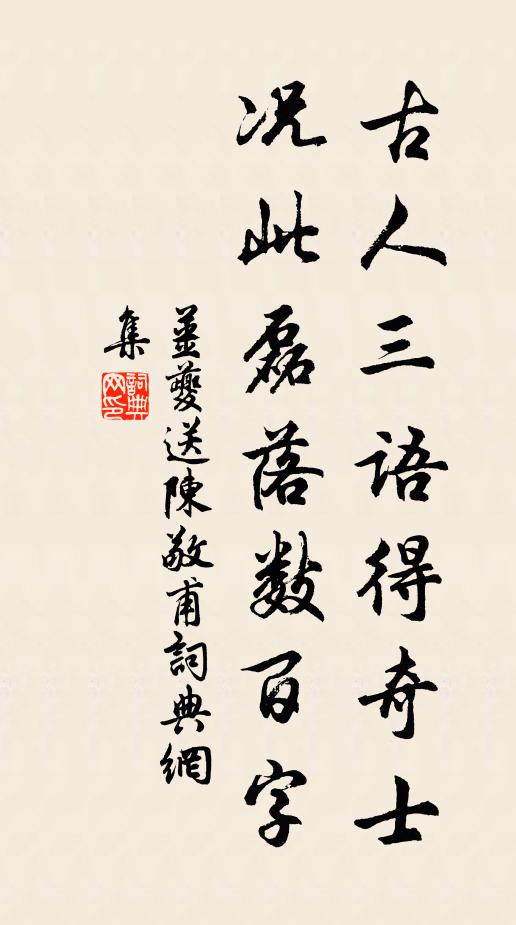 古人三语得奇士
况此磊落数百字
姜夔送陳敬甫詞典網
集
詞典网印